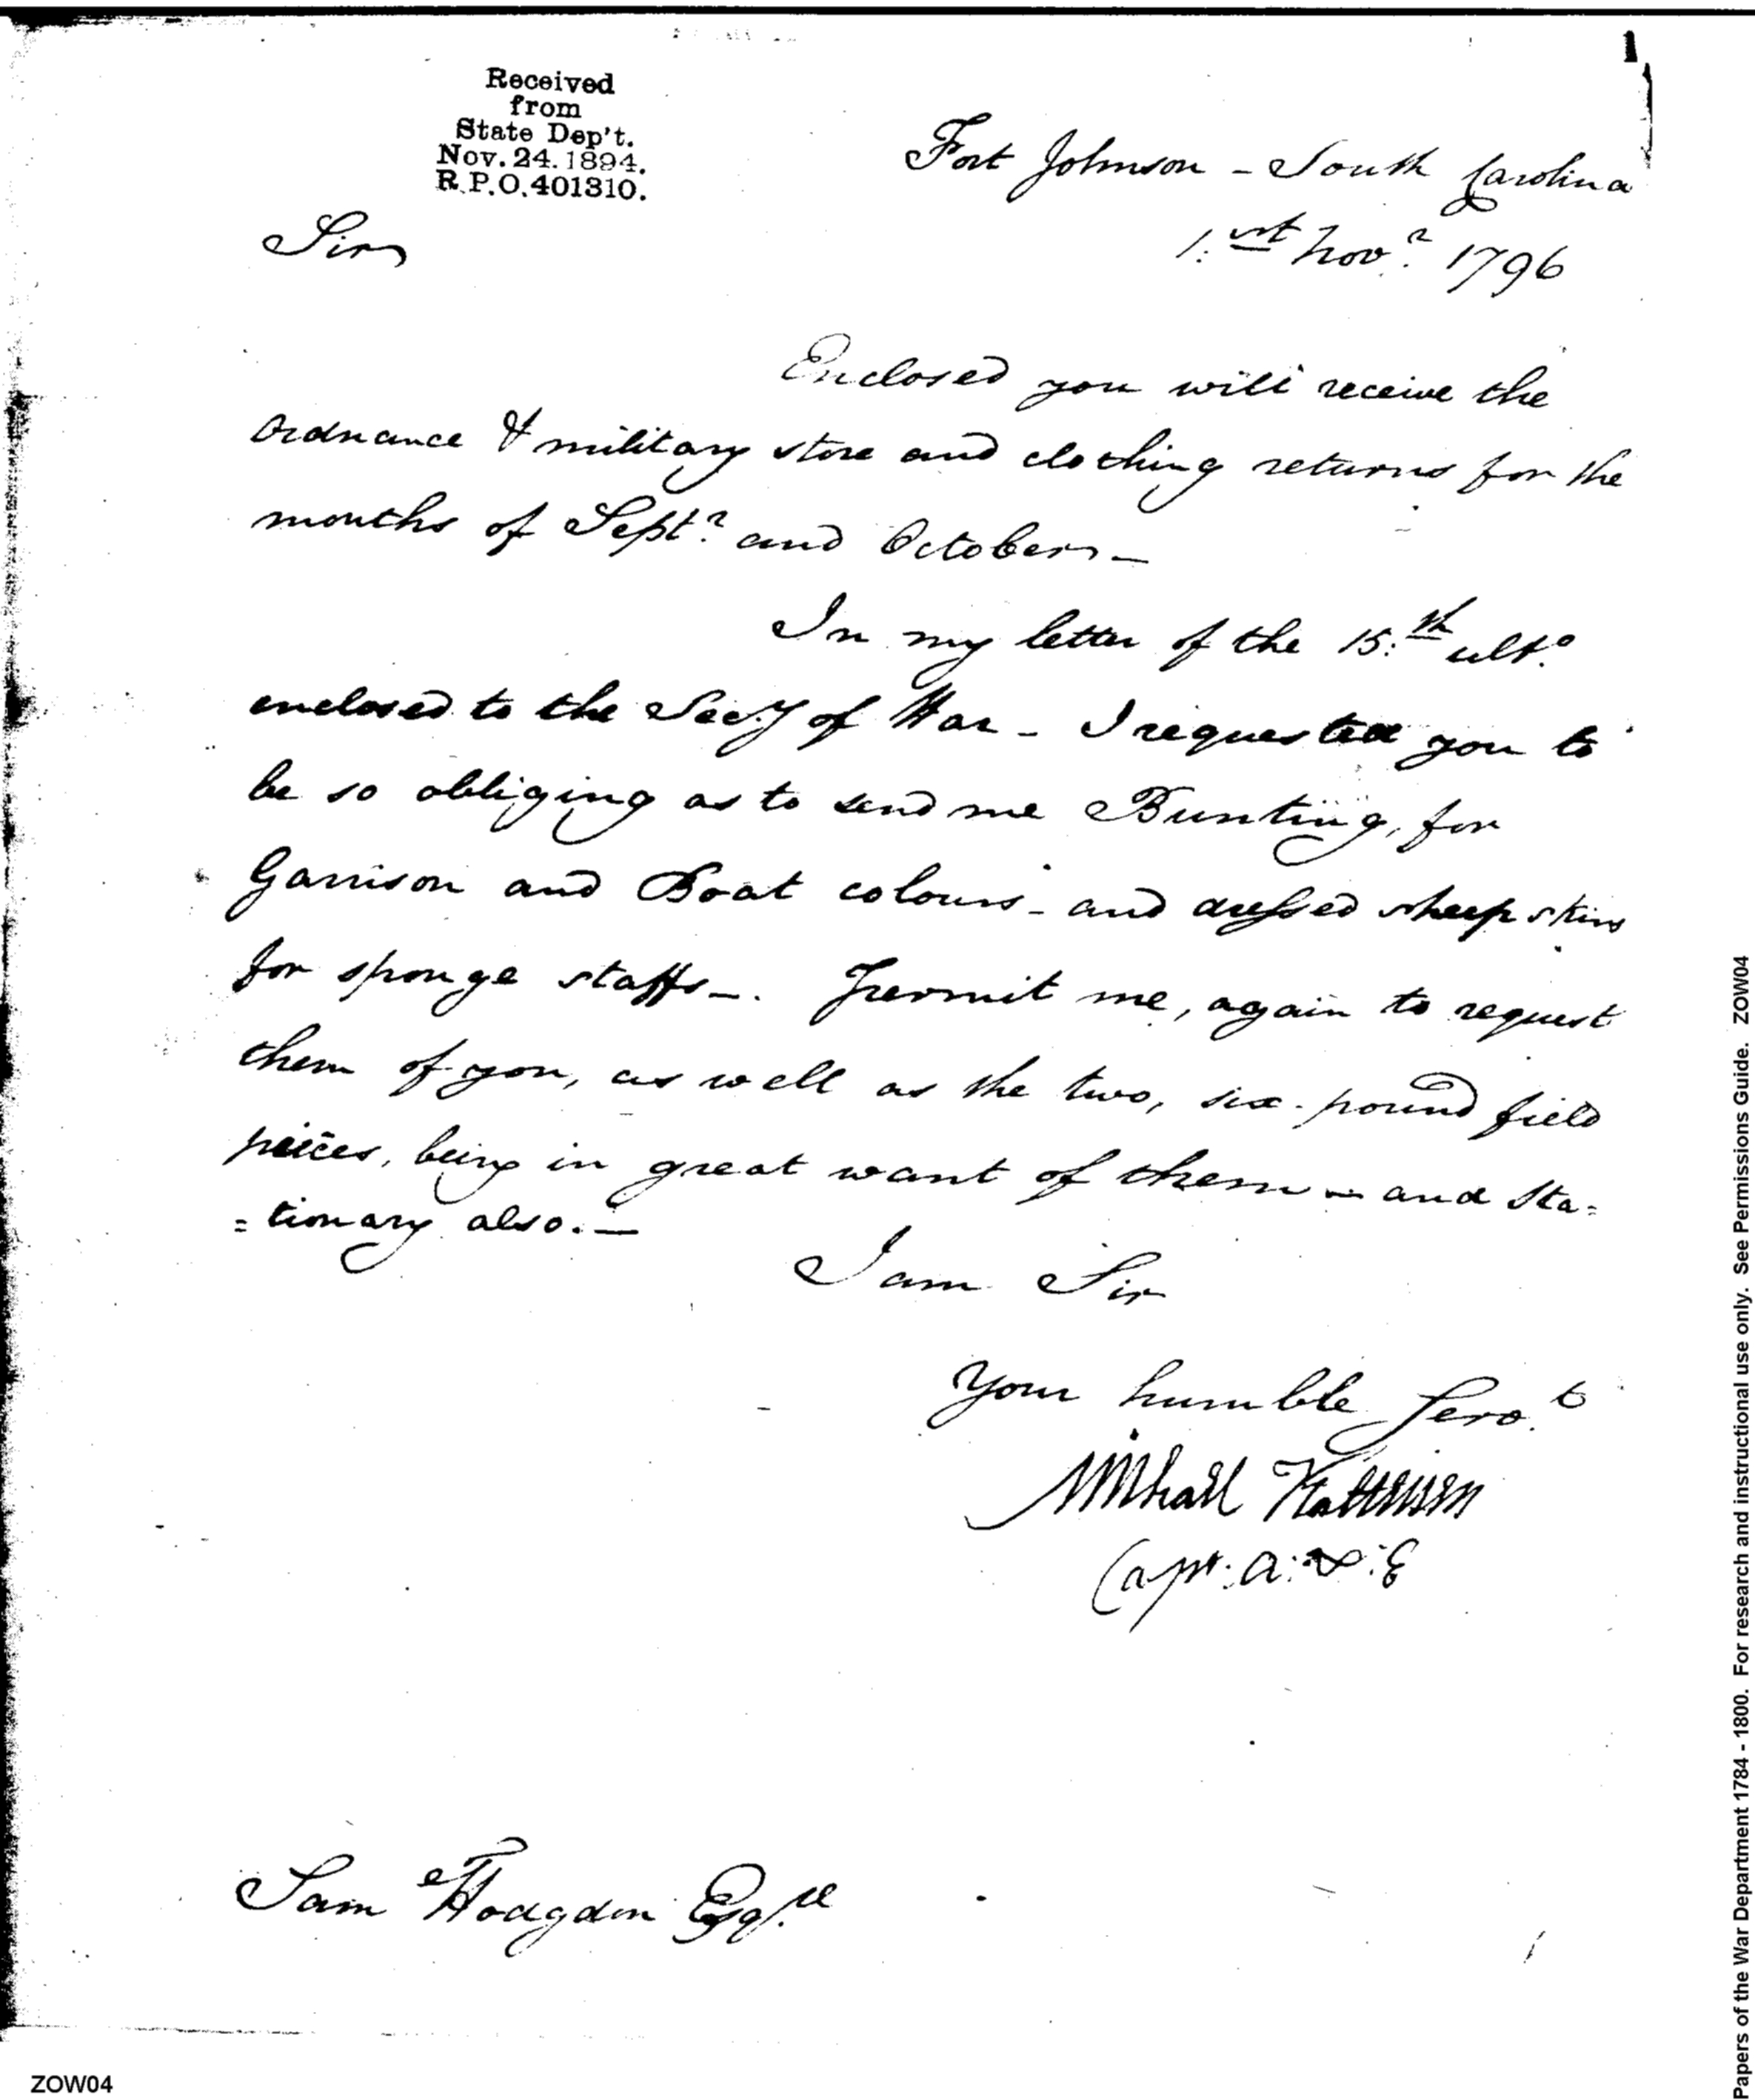 1
Received
from
State Dep't.
Nov. 24. 1894.
R.P.O. 401310.
Fort Johnson - South Carolina
1:st Novr. 1796
Sir
Enclosed you will receive the
Ordnance & military store and clothing returns for the
months of Septr. and October. -
In my letter of the 15:th ulto.
enclosed to the Secy of War - I requested you to
be so obliging as to send me Bunting, for
Garrison and Boat colours - and dressed sheep skins
for sponge staffs -. Permit me, again to request
them of you, as well as the two, six-pound field
peices, being in great want of them - and Sta=
=tionary also. -
I am Sir
Your humble Servt.
Michael Kalteisen
Capt: A: & : E
Sam Hodgdon Esqr.
ZOW04
Papers of the War Department 1784 - 1800. For research and instructional use only. See Permissions Guide. ZOW04